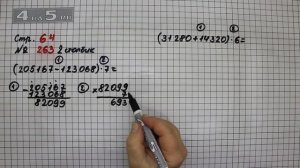 4@5.RU
Стр. 64
№ 263 2 столбик
① ②
(205167-123068)·7=
① ②
(31280+14320)·6=
① -205167
123068
82099
② ×82099
7
693